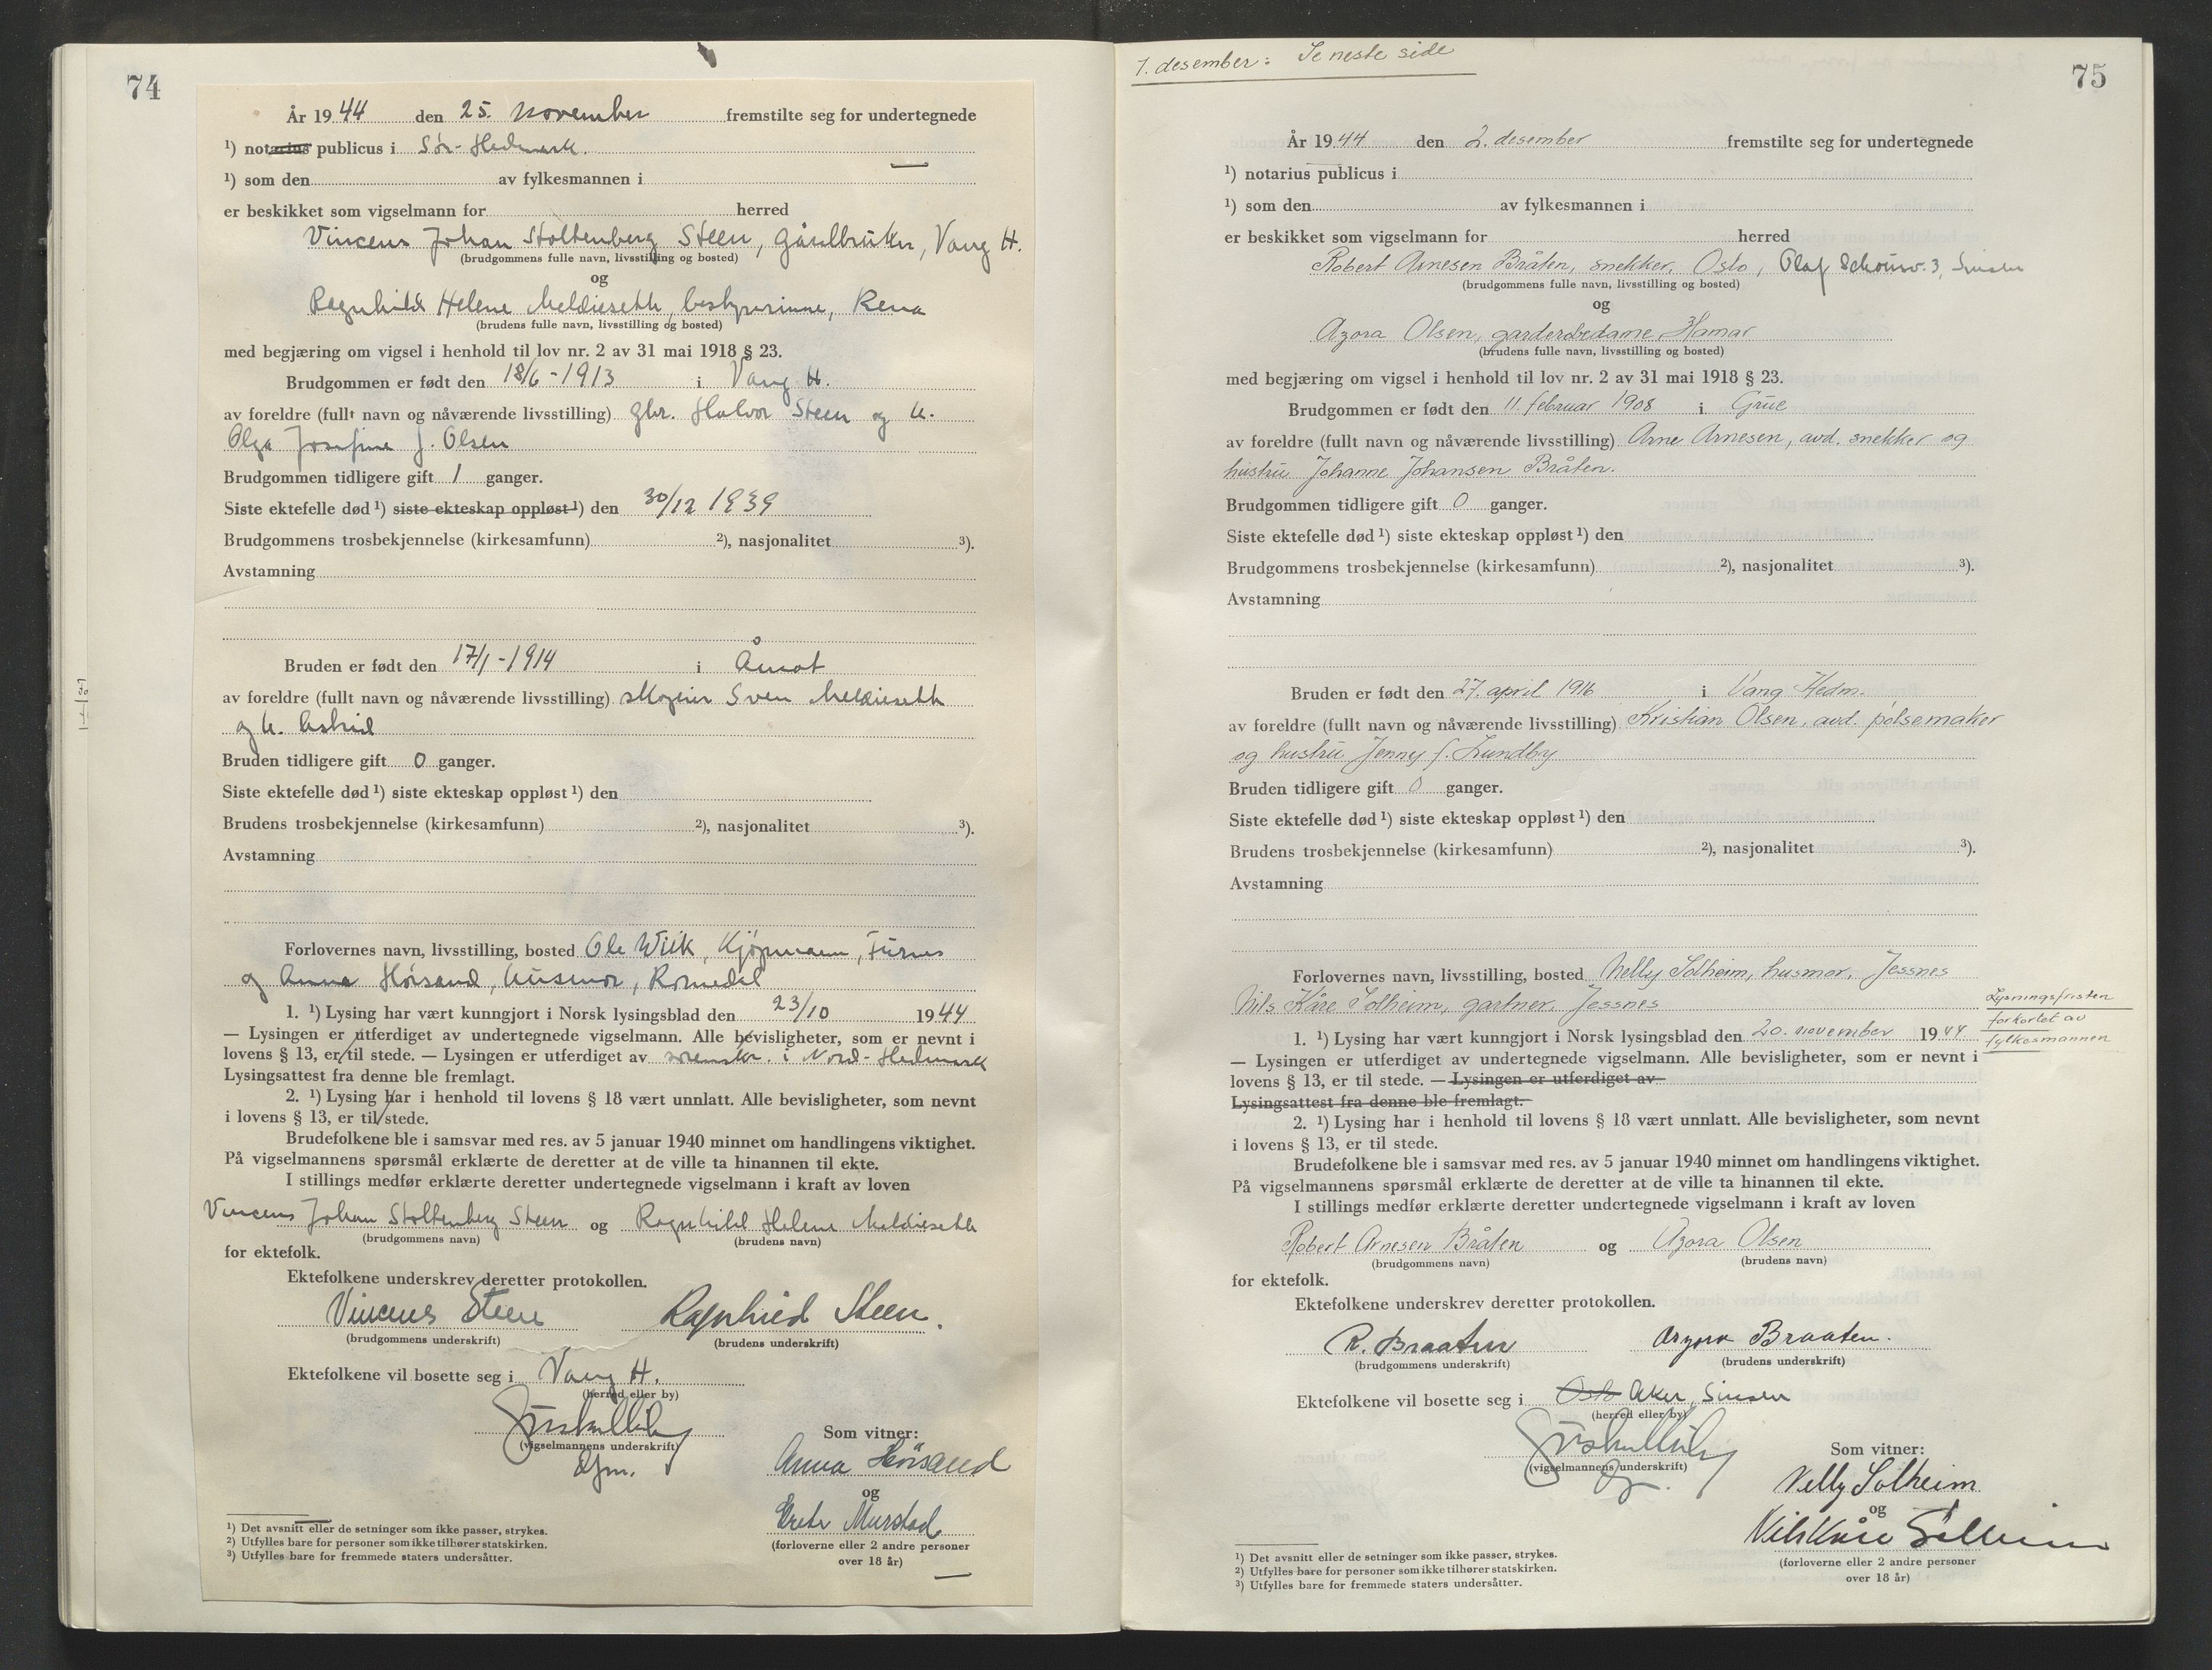 74
År 1944 den 25. november fremstilte seg for undertegnede
¹) notarius publicus i Sør-Hedmark.
¹) som den av fylkesmannen i
er beskikket som vigselmann for herred
Vincens Johan Stoltenberg Steen, gårdbruker, Vang H.
(brudgommens fulle navn, livsstilling og bosted)
og
Ragnhild Helene Meldieseth, bestyrerinne, Rena
(brudens fulle navn, livsstilling og bosted)
med begjæring om vigsel i henhold til lov nr. 2 av 31 mai 1918 § 23.
Brudgommen er født den 18/6-1913 i Vang H.
av foreldre (fullt navn og nåværende livsstilling) gbr. Halvor Steen og h.
Olga Josefine f. Olsen
Brudgommen tidligere gift 1 ganger.
Siste ektefelle død ¹) siste ekteskap oppløst ¹) den 30/12 1939
Brudgommens trosbekjennelse (kirkesamfunn) ²), nasjonalitet ³).
Avstamning
Bruden er født den 17/1-1914 i Åmot
av foreldre (fullt navn og nåværende livsstilling) skogeier Sven Meldieseth
og h. Astrid
Bruden tidligere gift 0 ganger.
Siste ektefelle død ¹) siste ekteskap oppløst ¹) den
Brudens trosbekjennelse (kirkesamfunn) ²), nasjonalitet ³).
Avstamning
Forlovernes navn, livsstilling, bosted Ole Wiik, Kjøpmann, Furnes
og Anna Hørsand, husmor, Romedal
1. ¹) Lysing har vært kunngjort i Norsk lysingsblad den 23/10 1944
— Lysingen er utferdiget av undertegnede vigselmann. Alle bevisligheter, som er nevnt i
lovens § 13, er til stede. — Lysingen er utferdiget av sorenskr. i Nord-Hedmark
Lysingsattest fra denne ble fremlagt.
2. ¹) Lysing har i henhold til lovens § 18 vært unnlatt. Alle bevisligheter, som nevnt
i lovens § 13, er til stede.
Brudefolkene ble i samsvar med res. av 5 januar 1940 minnet om handlingens viktighet.
På vigselmannens spørsmål erklærte de deretter at de ville ta hinannen til ekte.
I stillings medfør erklærte deretter undertegnede vigselmann i kraft av loven
Vincens Johan Stoltenberg Steen og Ragnhild Helene Meldieseth
(brudgommens navn) (brudens navn)
for ektefolk.
Ektefolkene underskrev deretter protokollen.
Vincens Steen Ragnhild Steen.
(brudgommens underskrift) (brudens underskrift)
Ektefolkene vil bosette seg i Vang H.
(herred eller by)
(vigselmannens underskrift)
Som vitner:
Anna Hørsand
og
Grete Murstad
(forloverne eller 2 andre personer
over 18 år)
¹) Det avsnitt eller de setninger som ikke passer, strykes.
²) Utfylles bare for personer som ikke tilhører statskirken.
³) Utfylles bare for fremmede staters undersåtter.
75
1. desember: Se neste side
År 1944 den 2. desember fremstilte seg for undertegnede
¹) notarius publicus i
¹) som den av fylkesmannen i
er beskikket som vigselmann for herred
Robert Arnesen Bråten, snekker, Oslo, Olaf Schousv. 3, Sinsen
(brudgommens fulle navn, livsstilling og bosted)
og
Azora Olsen, garderobedame, Hamar
(brudens fulle navn, livsstilling og bosted)
med begjæring om vigsel i henhold til lov nr. 2 av 31 mai 1918 § 23.
Brudgommen er født den 11. februar 1908 i Grue
av foreldre (fullt navn og nåværende livsstilling) Arne Arnesen, avd. snekker og
hustru Johanne Johansen Bråten.
Brudgommen tidligere gift 0 ganger.
Siste ektefelle død ¹) siste ekteskap oppløst ¹) den
Brudgommens trosbekjennelse (kirkesamfunn) ²), nasjonalitet ³).
Avstamning
Bruden er født den 27. april 1916 i Vang Hedm.
av foreldre (fullt navn og nåværende livsstilling) Kristian Olsen, avd. pølsemaker
og hustru Jenny f. Lundby
Bruden tidligere gift 0 ganger.
Siste ektefelle død ¹) siste ekteskap oppløst ¹) den
Brudens trosbekjennelse (kirkesamfunn) ²), nasjonalitet ³).
Avstamning
Forlovernes navn, livsstilling, bosted Nelly Solheim, husmor, Jessnes
Nils Kåre Solheim, gartner, Jessnes
Lysningsfristen
forkortet av
fylkesmannen
1. ¹) Lysing har vært kunngjort i Norsk lysingsblad den 20. november 1944
— Lysingen er utferdiget av undertegnede vigselmann. Alle bevisligheter, som er nevnt i
lovens § 13, er til stede. — Lysingen er utferdiget av
Lysingsattest fra denne ble fremlagt.
2. ¹) Lysing har i henhold til lovens § 18 vært unnlatt. Alle bevisligheter, som nevnt
i lovens § 13, er til stede.
Brudefolkene ble i samsvar med res. av 5 januar 1940 minnet om handlingens viktighet.
På vigselmannens spørsmål erklærte de deretter at de ville ta hinannen til ekte.
I stillings medfør erklærte deretter undertegnede vigselmann i kraft av loven
Robert Arnesen Bråten og Azora Olsen
(brudgommens navn) (brudens navn)
for ektefolk.
Ektefolkene underskrev deretter protokollen.
R. Braaten Azora Braaten.
(brudgommens underskrift) (brudens underskrift)
Ektefolkene vil bosette seg i Oslo Aker, Sinsen
(herred eller by)
(vigselmannens underskrift)
Som vitner:
Nelly Solheim
og
Nils Kåre Solheim
(forloverne eller 2 andre personer
over 18 år)
¹) Det avsnitt eller de setninger som ikke passer, strykes.
²) Utfylles bare for personer som ikke tilhører statskirken.
³) Utfylles bare for fremmede staters undersåtter.